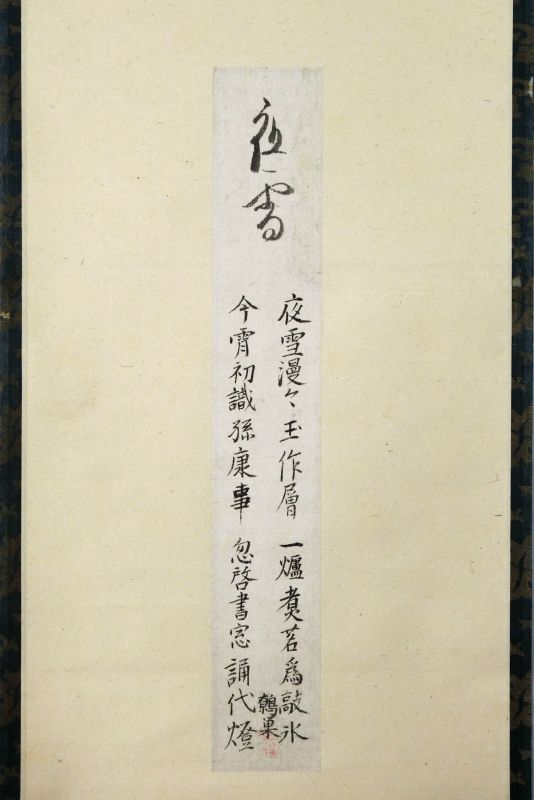 夜雪
夜雪漫々玉作層 一爐煑茗爲敲氷
今宵初識孫康事 忽啓書窓誦代燈
鷦巣